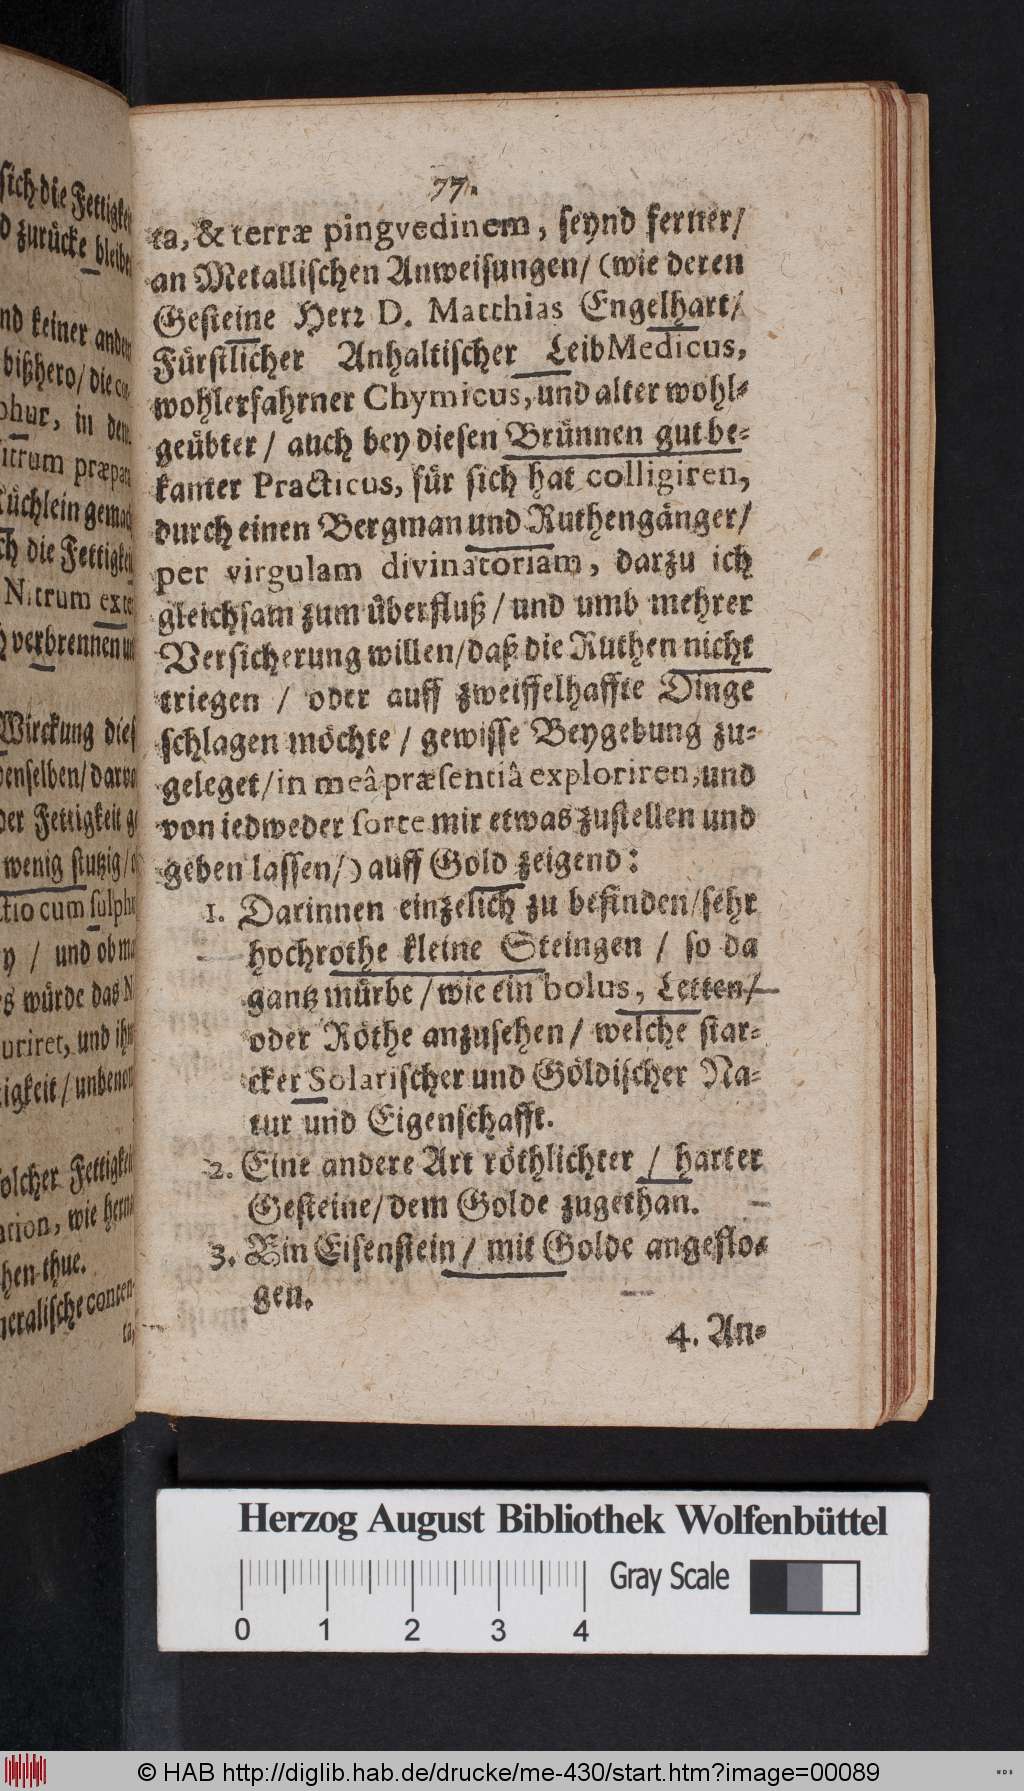 sich die Fettigkei
d zurücke bleibet
nd keiner andern
bißhero/ die
phur, in dem
itrum præpar
Küchlein gemach
ch die Fettigkei
Nitrum exte
h verbrennen un
Wirckung dies
denselben/ dar
der Fettigkeit
wenig stutzig/
tio cum sulph
y / und ob
s würde das N
uriret, und ih
igkeit/ unbenom
olcher Fettigkei
ation, wie hern
hen thue.
neralische conten-
ta,
77.
ta, & terræ pingvedinem, seynd ferner/
an Metallischen Anweisungen/ (wie deren
Gesteine Herz D. Matthias Engelhart/
Fürstlicher Anhaltischer Leib Medicus,
wohlerfahrner Chymicus, und alter wohl-
geübter / auch bey diesen Brünnen gut be-
kanter Practicus, für sich hat colligiren,
durch einen Bergman und Ruthengänger/
per virgulam divinatoriam, darzu ich
gleichsam zum überfluß / und umb mehrer
Versicherung willen/ daß die Ruthen nicht
triegen / oder auff zweiffelhaffte Dinge
schlagen möchte / gewisse Beygebung zu-
geleget/ in meâ præsentiâ exploriren, und
von iedweder sorte mir etwas zustellen und
geben lassen/) auff Gold zeigend:
1. Darinnen einzelich zu befinden/ sehr
hochrothe kleine Steingen / so da
gantz mürbe / wie ein bolus, Letten/
oder Röthe anzusehen/ welche star-
cker Solarischer und Göldischer Na-
tur und Eigenschafft.
2. Eine andere Art röthlichter / harter
Gesteine/ dem Golde zugethan.
3. Ein Eisenstein / mit Golde angeflo-
gen.
4. An-
Herzog August Bibliothek Wolfenbüttel
Gray Scale
0 1 2 3 4
© HAB http://diglib.hab.de/drucke/me-430/start.htm?image=00089